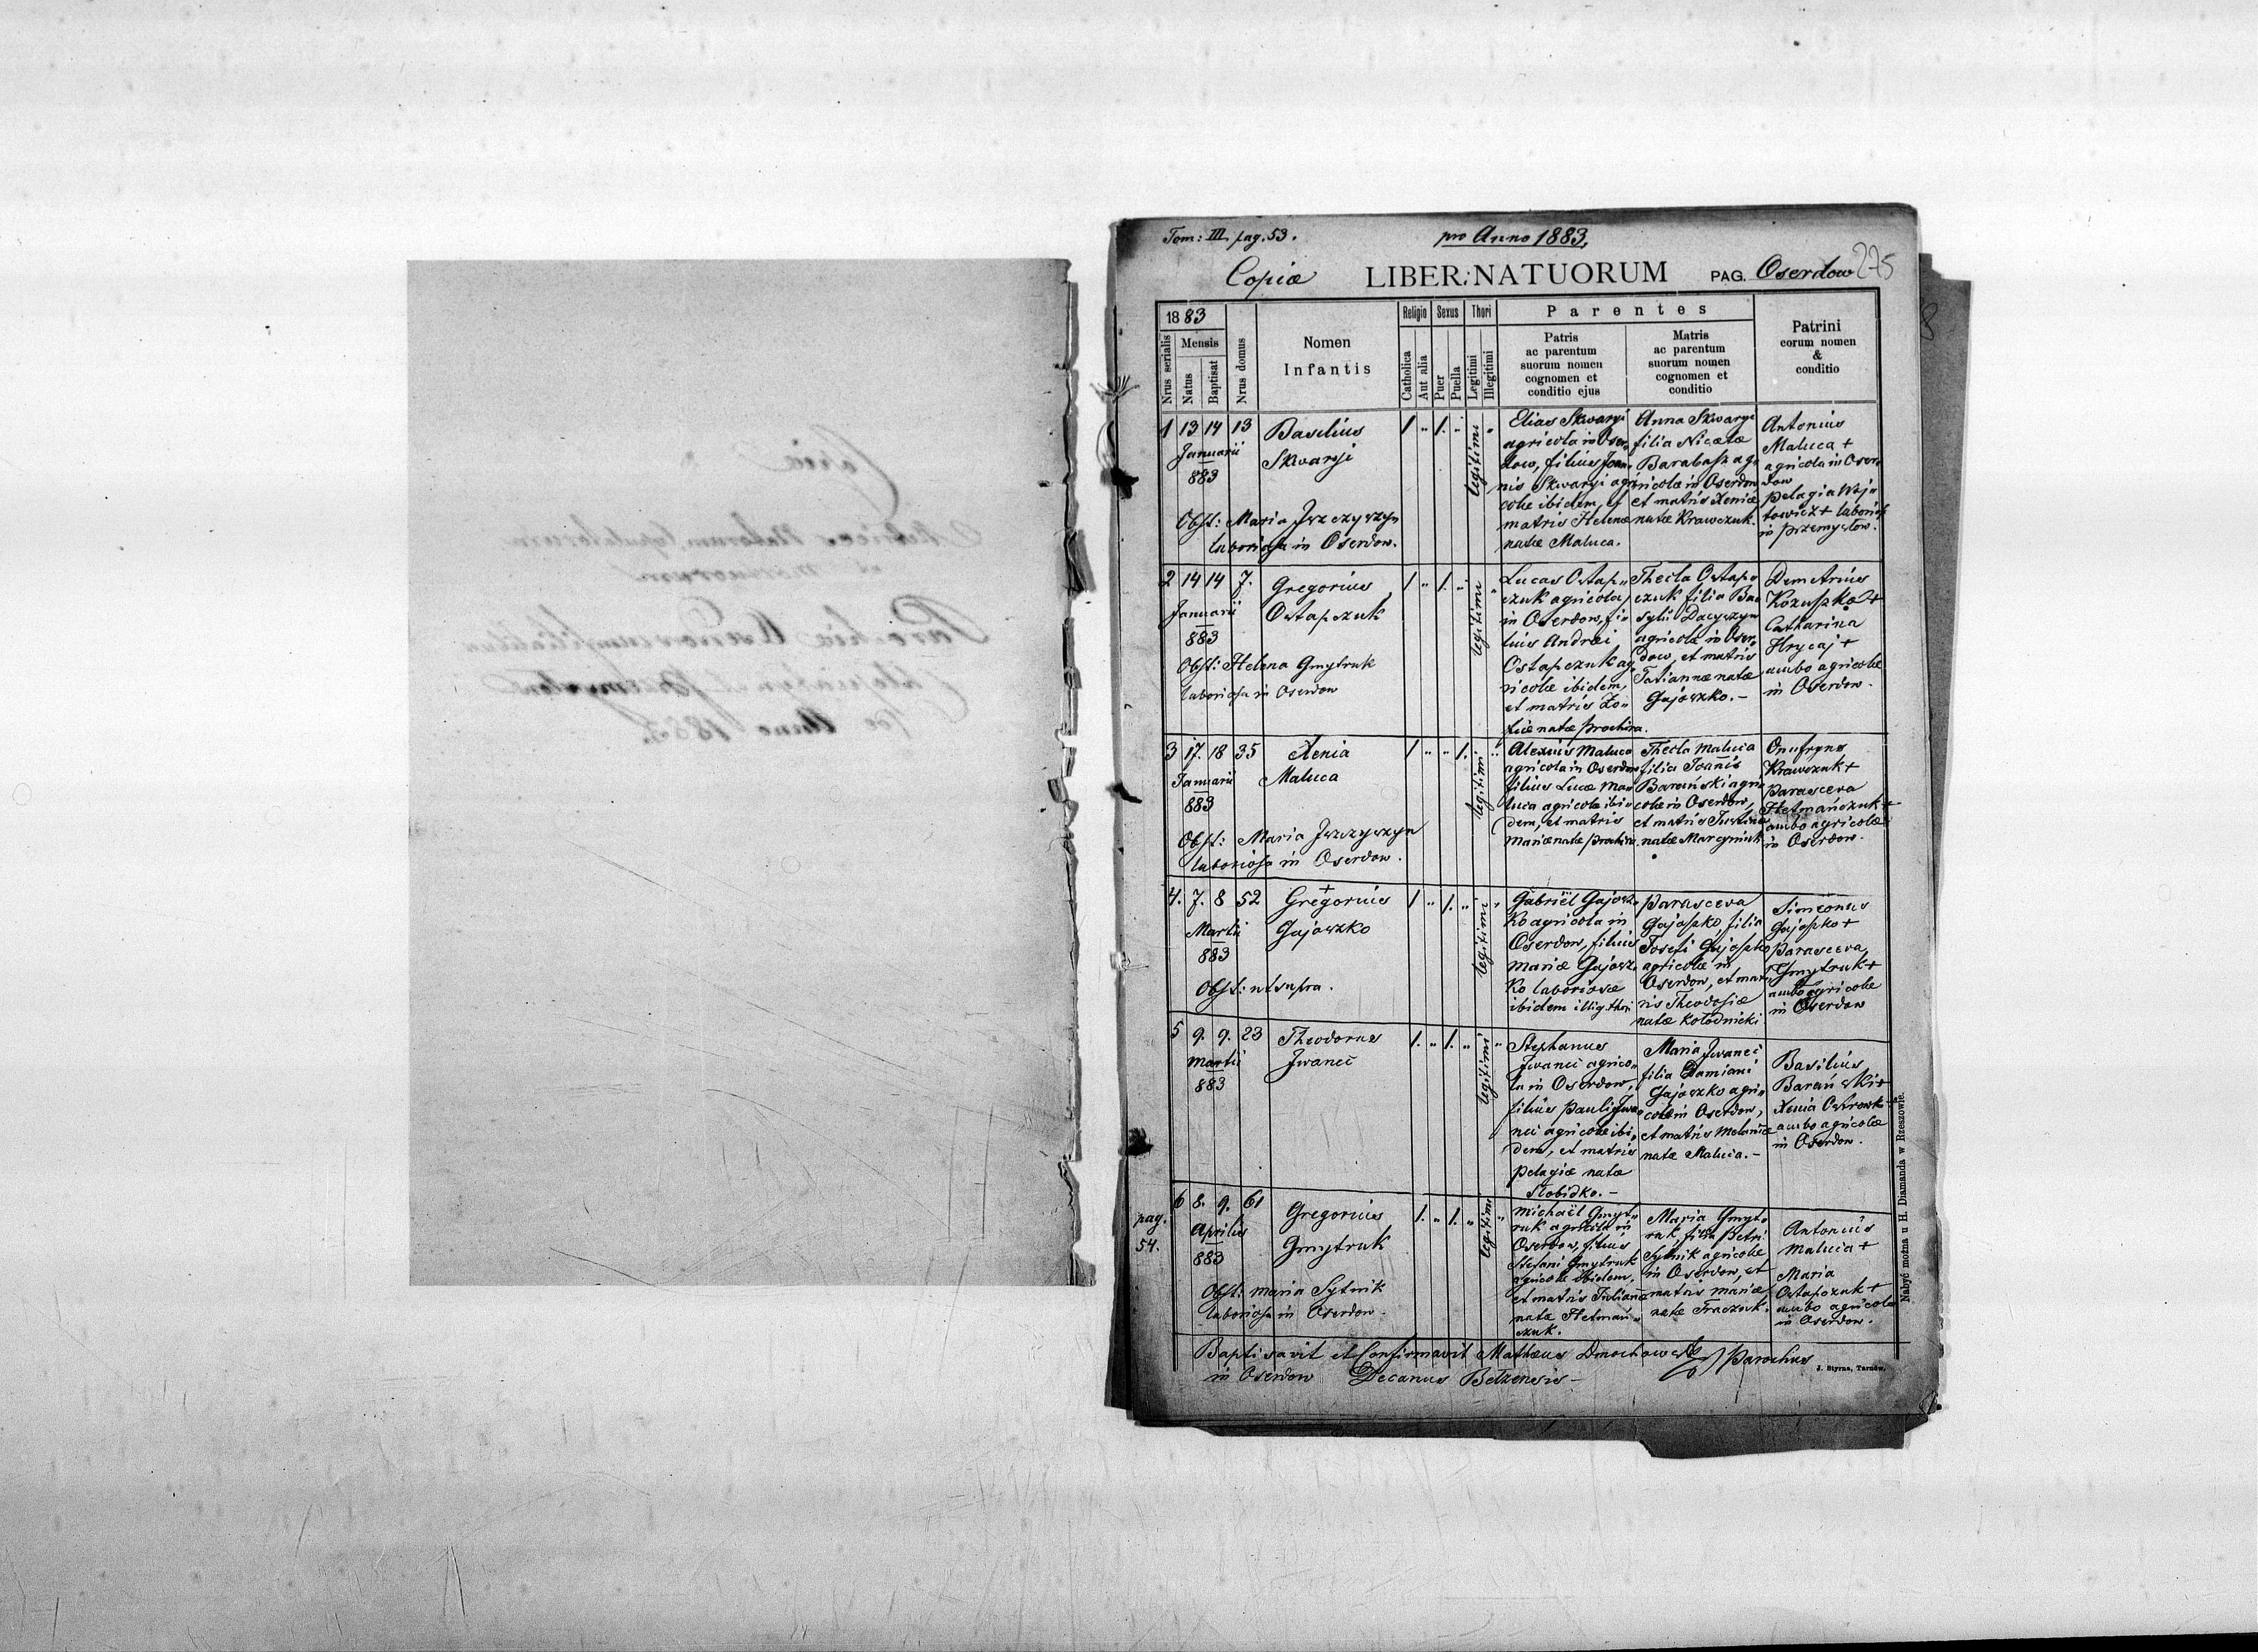 Tom: III. pag. 53.
pro Anno 1883.
Copia LIBER NATUORUM PAG. Oserdow 275
1883
Nrus serialis
Mensis
Natus
Baptisat
Nrus domus
Nomen
Infantis
Religio
Catholica
Aut alia
Sexus
Puer
Puella
Thori
Legitimi
Illegitimi
Parentes
Patris
ac parentum
suorum nomen
cognomen et
conditio ejus
Matris
ac parentum
suorum nomen
cognomen et
conditio
Patrini
eorum nomen
&
conditio
1 13 14 13
Januarii
883
Basilius
Skwaryi
Obst: Maria Jszczyszyn
laboriosa in Oserdow.
1 " 1. "
legitimi "
Elias Skwaryi
agricola in Oser„
dow, filius Joan„
nis Skwaryi agri
colæ ibidem, et
matris Helenæ
natæ Maluca.
Anna Skwaryi
filia Nicetæ
Barabasz ag„
ricolæ in Oserdow
et matris Xeniæ
natæ Krawczuk.
Antonius
Maluca +
agricola in Oser„
dow
Pelagia Woj„
towicz + laboriosa
in Przemysłow.
2 14 14 7.
Januarii
883
Gregorius
Ostapczuk
Obst: Helena Gmytruk
laboriosa in Oserdow
1 " 1. "
legitimi "
Lucas Ostap„
czuk agricola
in Oserdow, fi„
lius Andrei
Ostapczuk ag„
ricolæ ibidem,
et matris Zo„
fiæ natæ Prochira.
Thecla Ostap„
czuk filia Ba„
sylii Dacyszyn
agricolæ in Oser„
dow, et matris
Tatiannæ natæ
Gajoszko. –
Demetrius
Kozuszko +
Catharina
Hrycaj +
ambo agricolæ
in Oserdow.
3 17. 18 35
Januarii
883
Xenia
Maluca
Obst: Maria Jszczyszyn
laboriosa in Oserdow.
1 " " 1.
legitimi "
Alexius Maluca
agricola in Oserdow
filius Lucæ Ma„
luca agricolæ ibi„
dem, et matris
Mariæ natæ Prochira.
Thecla Maluca
filia Joannis
Barański agri„
colæ in Oserdow,
et matris Justinæ
natæ Marcyniuk
Onufryus
Krawczuk +
Parasceva
Hetmańczuk +
ambo agricolæ
in Oserdow.
4. 7. 8 52
Martii
883
+
Gregorius
Gajoszko
Obst: ut supra.
1 " 1. "
legitimi "
Gabriël Gajosz„
ko agricola in
Oserdow, filius
Mariæ Gajosz„
ko laboriosæ
ibidem illig. thori
Parasceva
Gajoszko, filia
Josefi Gajoszko
agricolæ in
Oserdow, et mat„
ris Theodosiæ
natæ Kołodnicki
Simeonus
Gajoszko +
Parasceva
Gmytruk +
ambo agricolæ
in Oserdow
5 9. 9. 23
Martii
883
Theodorus
Jwanci
1. " 1. "
legitimi "
Stephanus
Jwanci agrico„
la in Oserdow,
filius Pauli Jwa„
nci agricolæ ibi„
dem, et matris
Pelagiæ natæ
Słobidko. –
Maria Jwanci
filia Damiani
Gajoszko agri„
colæ in Oserdow,
et matris Melaniæ
natæ Maluca. –
Basilius
Barański +
Xenia Ostrowk
ambo agricolæ
in Oserdow.
pag.
54.
6 8. 9. 61
Aprilis
883
Gregorius
Gmytruk
Obst: Maria Sytnik
laboriosa in Oserdow.
1. " 1. "
legitimi "
Michaël Gmyt„
ruk agricola in
Oserdow, filius
Stefani Gmytruk
agricolæ ibidem,
et matris Juliannæ
natæ Hetmań„
czuk.
Maria Gmyt„
ruk, filia Petri
Sytnik agricolæ
in Oserdow, et
matris Mariæ
natæ Traczuk.
Antonius
Maluca +
Maria
Ostapczuk +
ambo agricolæ
in Oserdow.
Baptisavit et Confirmavit Matheus Dmochowski Parochus
in Oserdow Decanus Bełzensis –
J. Styrna, Tarnów.
Nabyć można u H. Diamanda w Rzeszowie.